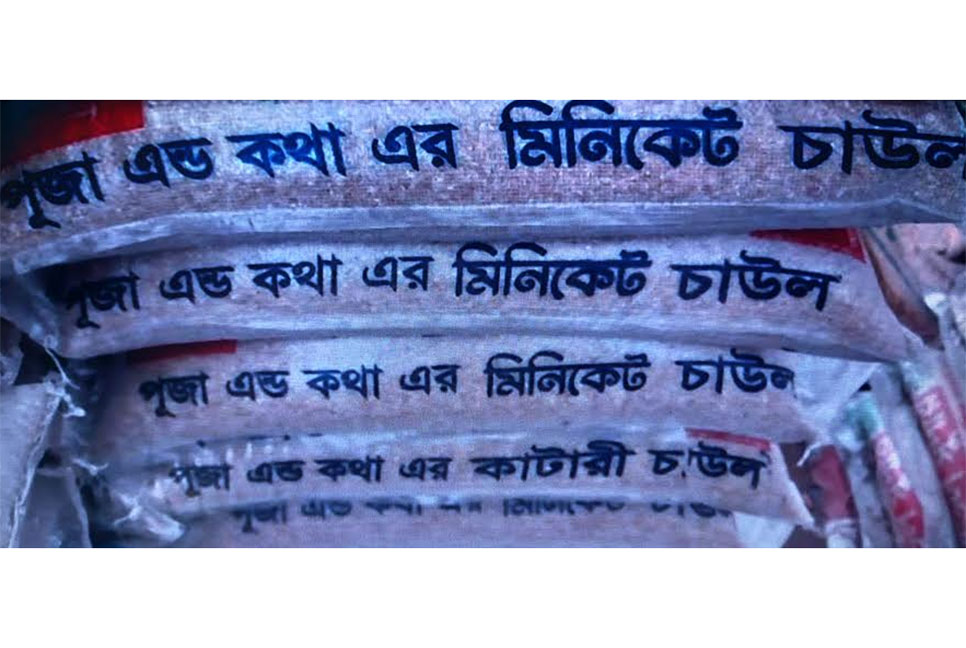 পূজা এন্ড কথা এর মিনিকেট চাউল
পূজা এন্ড কথা এর মিনিকেট চাউল
পূজা এন্ড কথা এর মিনিকেট চাউল
পূজা এন্ড কথা এর কাটারী চাউল
পূজা এন্ড কথা এর মিনিকেট চাউল